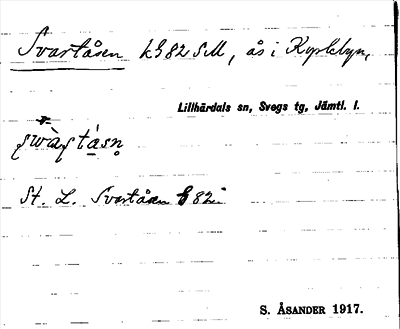 Svartåsen k582 SM, ås i Kyrkbyn,
Lillhärdals sn, Svegs tg, Jämtl. l.
St. L. Svartåsen 82
S. ÅSANDER 1917.